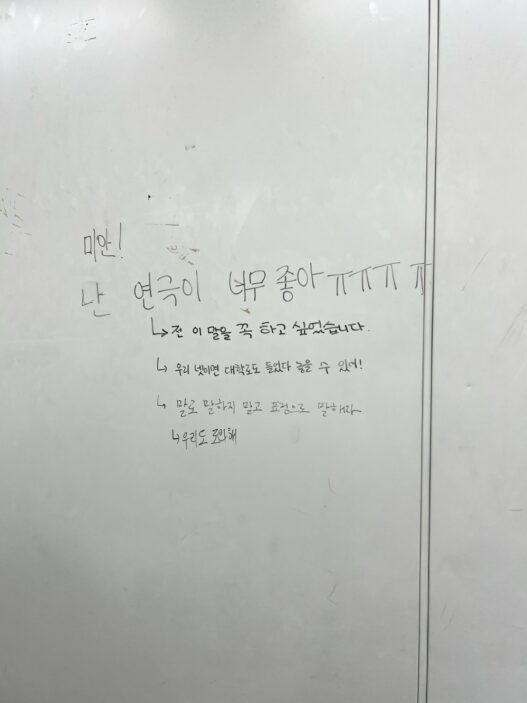 미안!
난 연극이 너무 좋아 ㅠㅠㅠㅠ
↳ 전 이 말을 꼭 하고 싶었습니다.
↳ 우리 넷이면 대학로도 들었다 놓을 수 있어!
↳ 말로 말하지 말고 표정으로 말해라
↳ 우리도